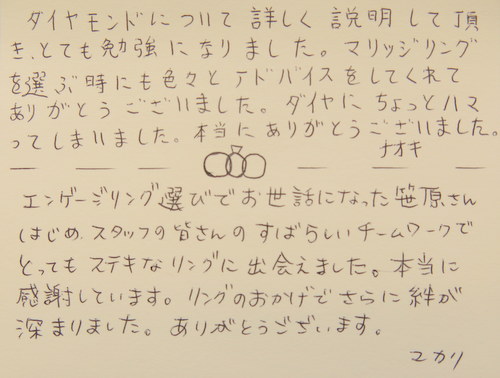 ダイヤモンドについて 詳しく 説明して頂
き、とても勉強になりました。マリッジリング
を選ぶ時にも色々とアドバイスをしてくれて
ありがとうございました。ダイヤにちょっとハマ
ってしまいました。本当にありがとうございました。
ナオキ
エンゲージリング選びでお世話になった笹原さん
はじめ、スタッフの皆さんのすばらしいチームワークで
とってもステキなリングに出会えました。本当に
感謝しています。リングのおかげでさらに絆が
深まりました。ありがとうございます。
ユカリ